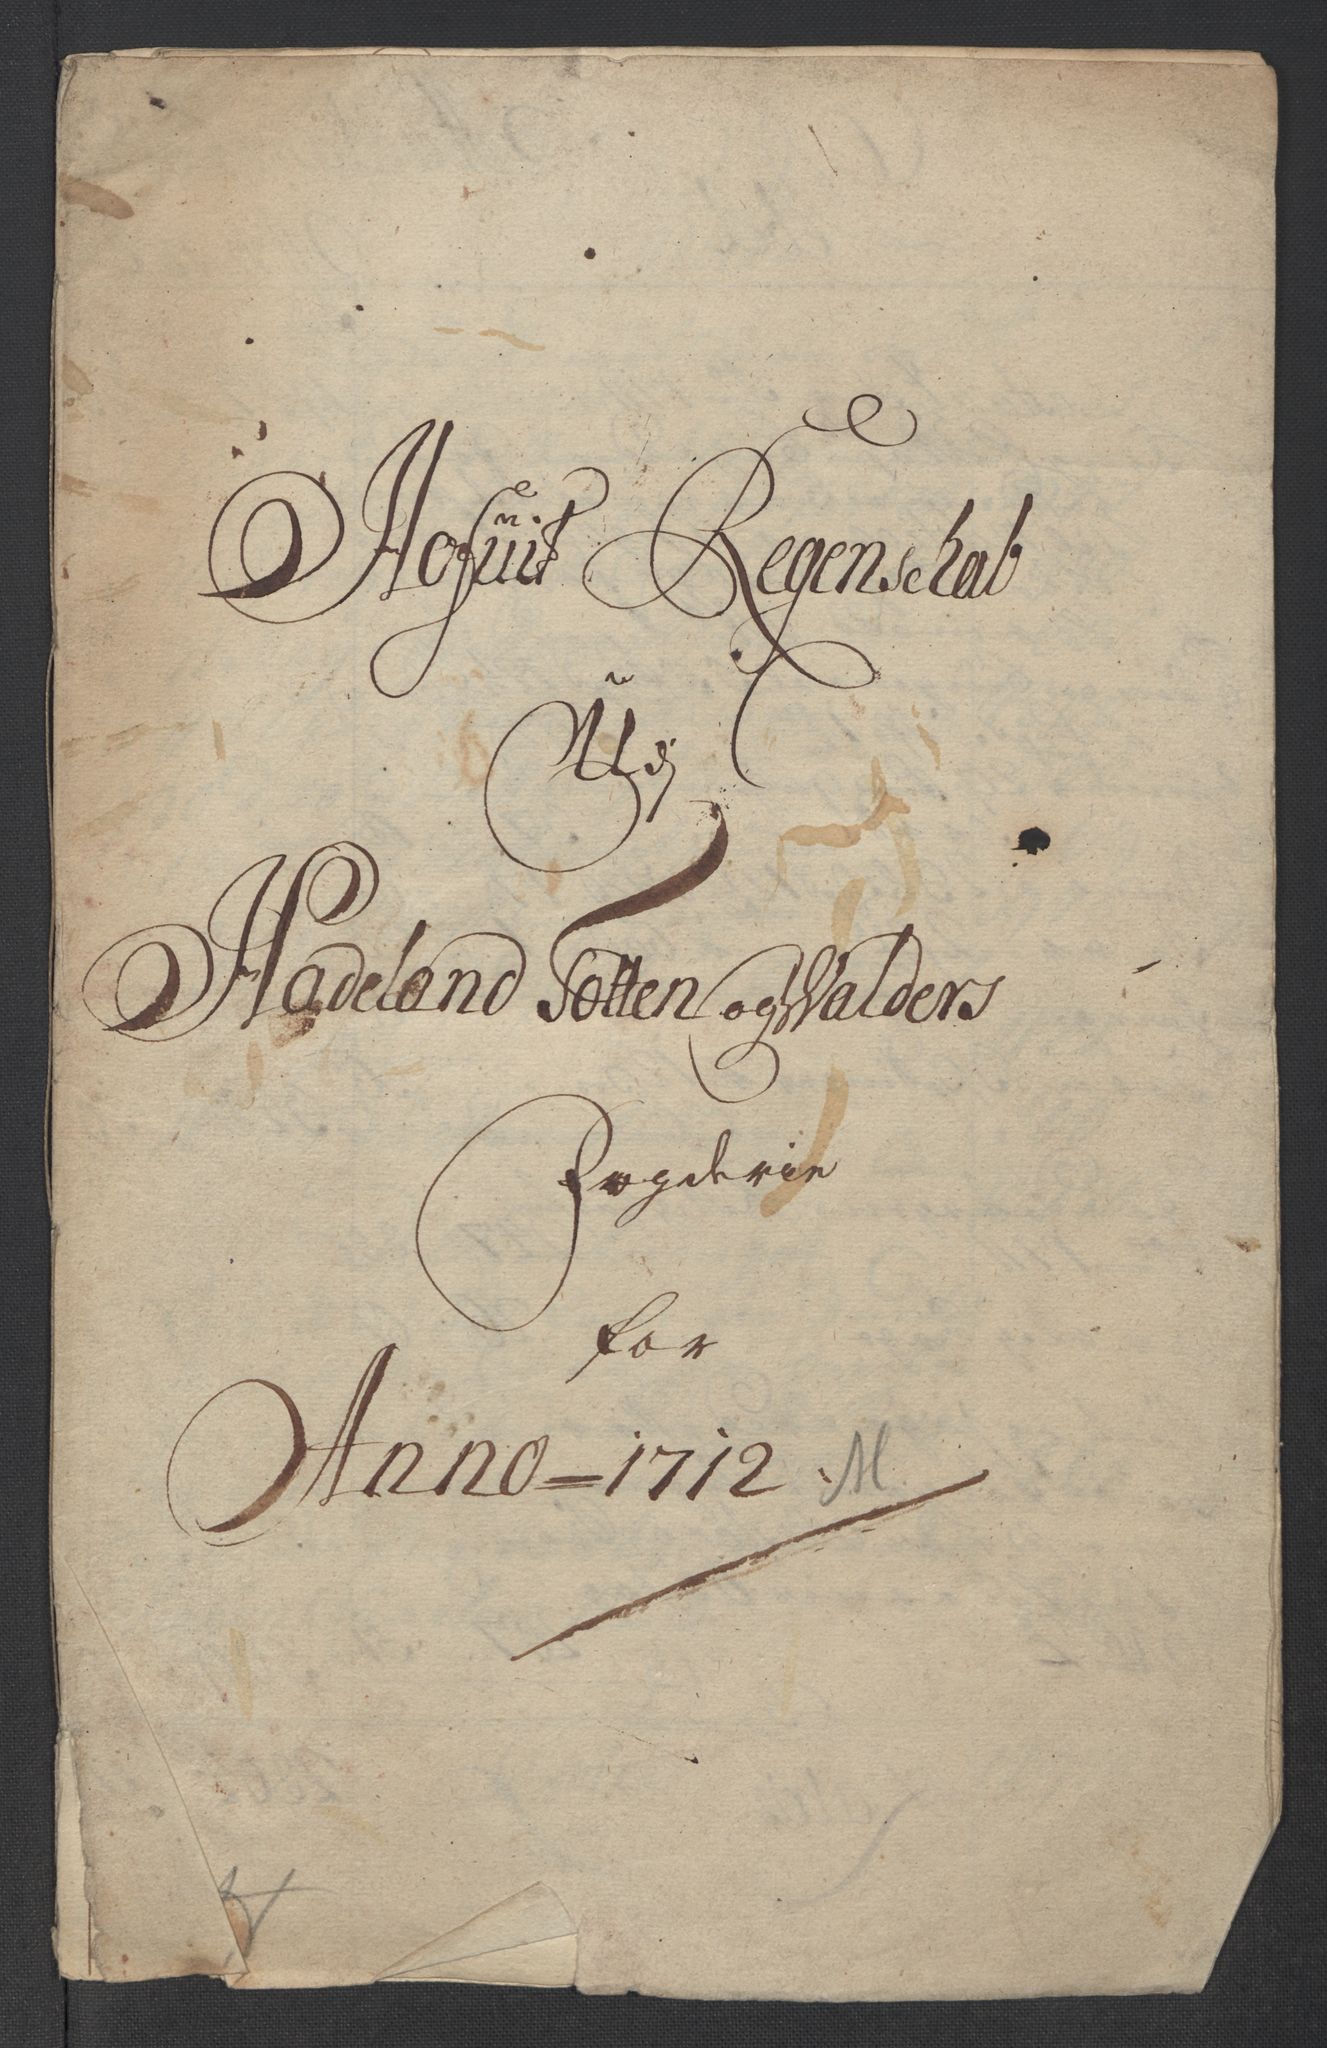 Hofuit Regenschab
Udj
Hadeland Totten og Walders
Fogderie
for
Anno = 1712 M